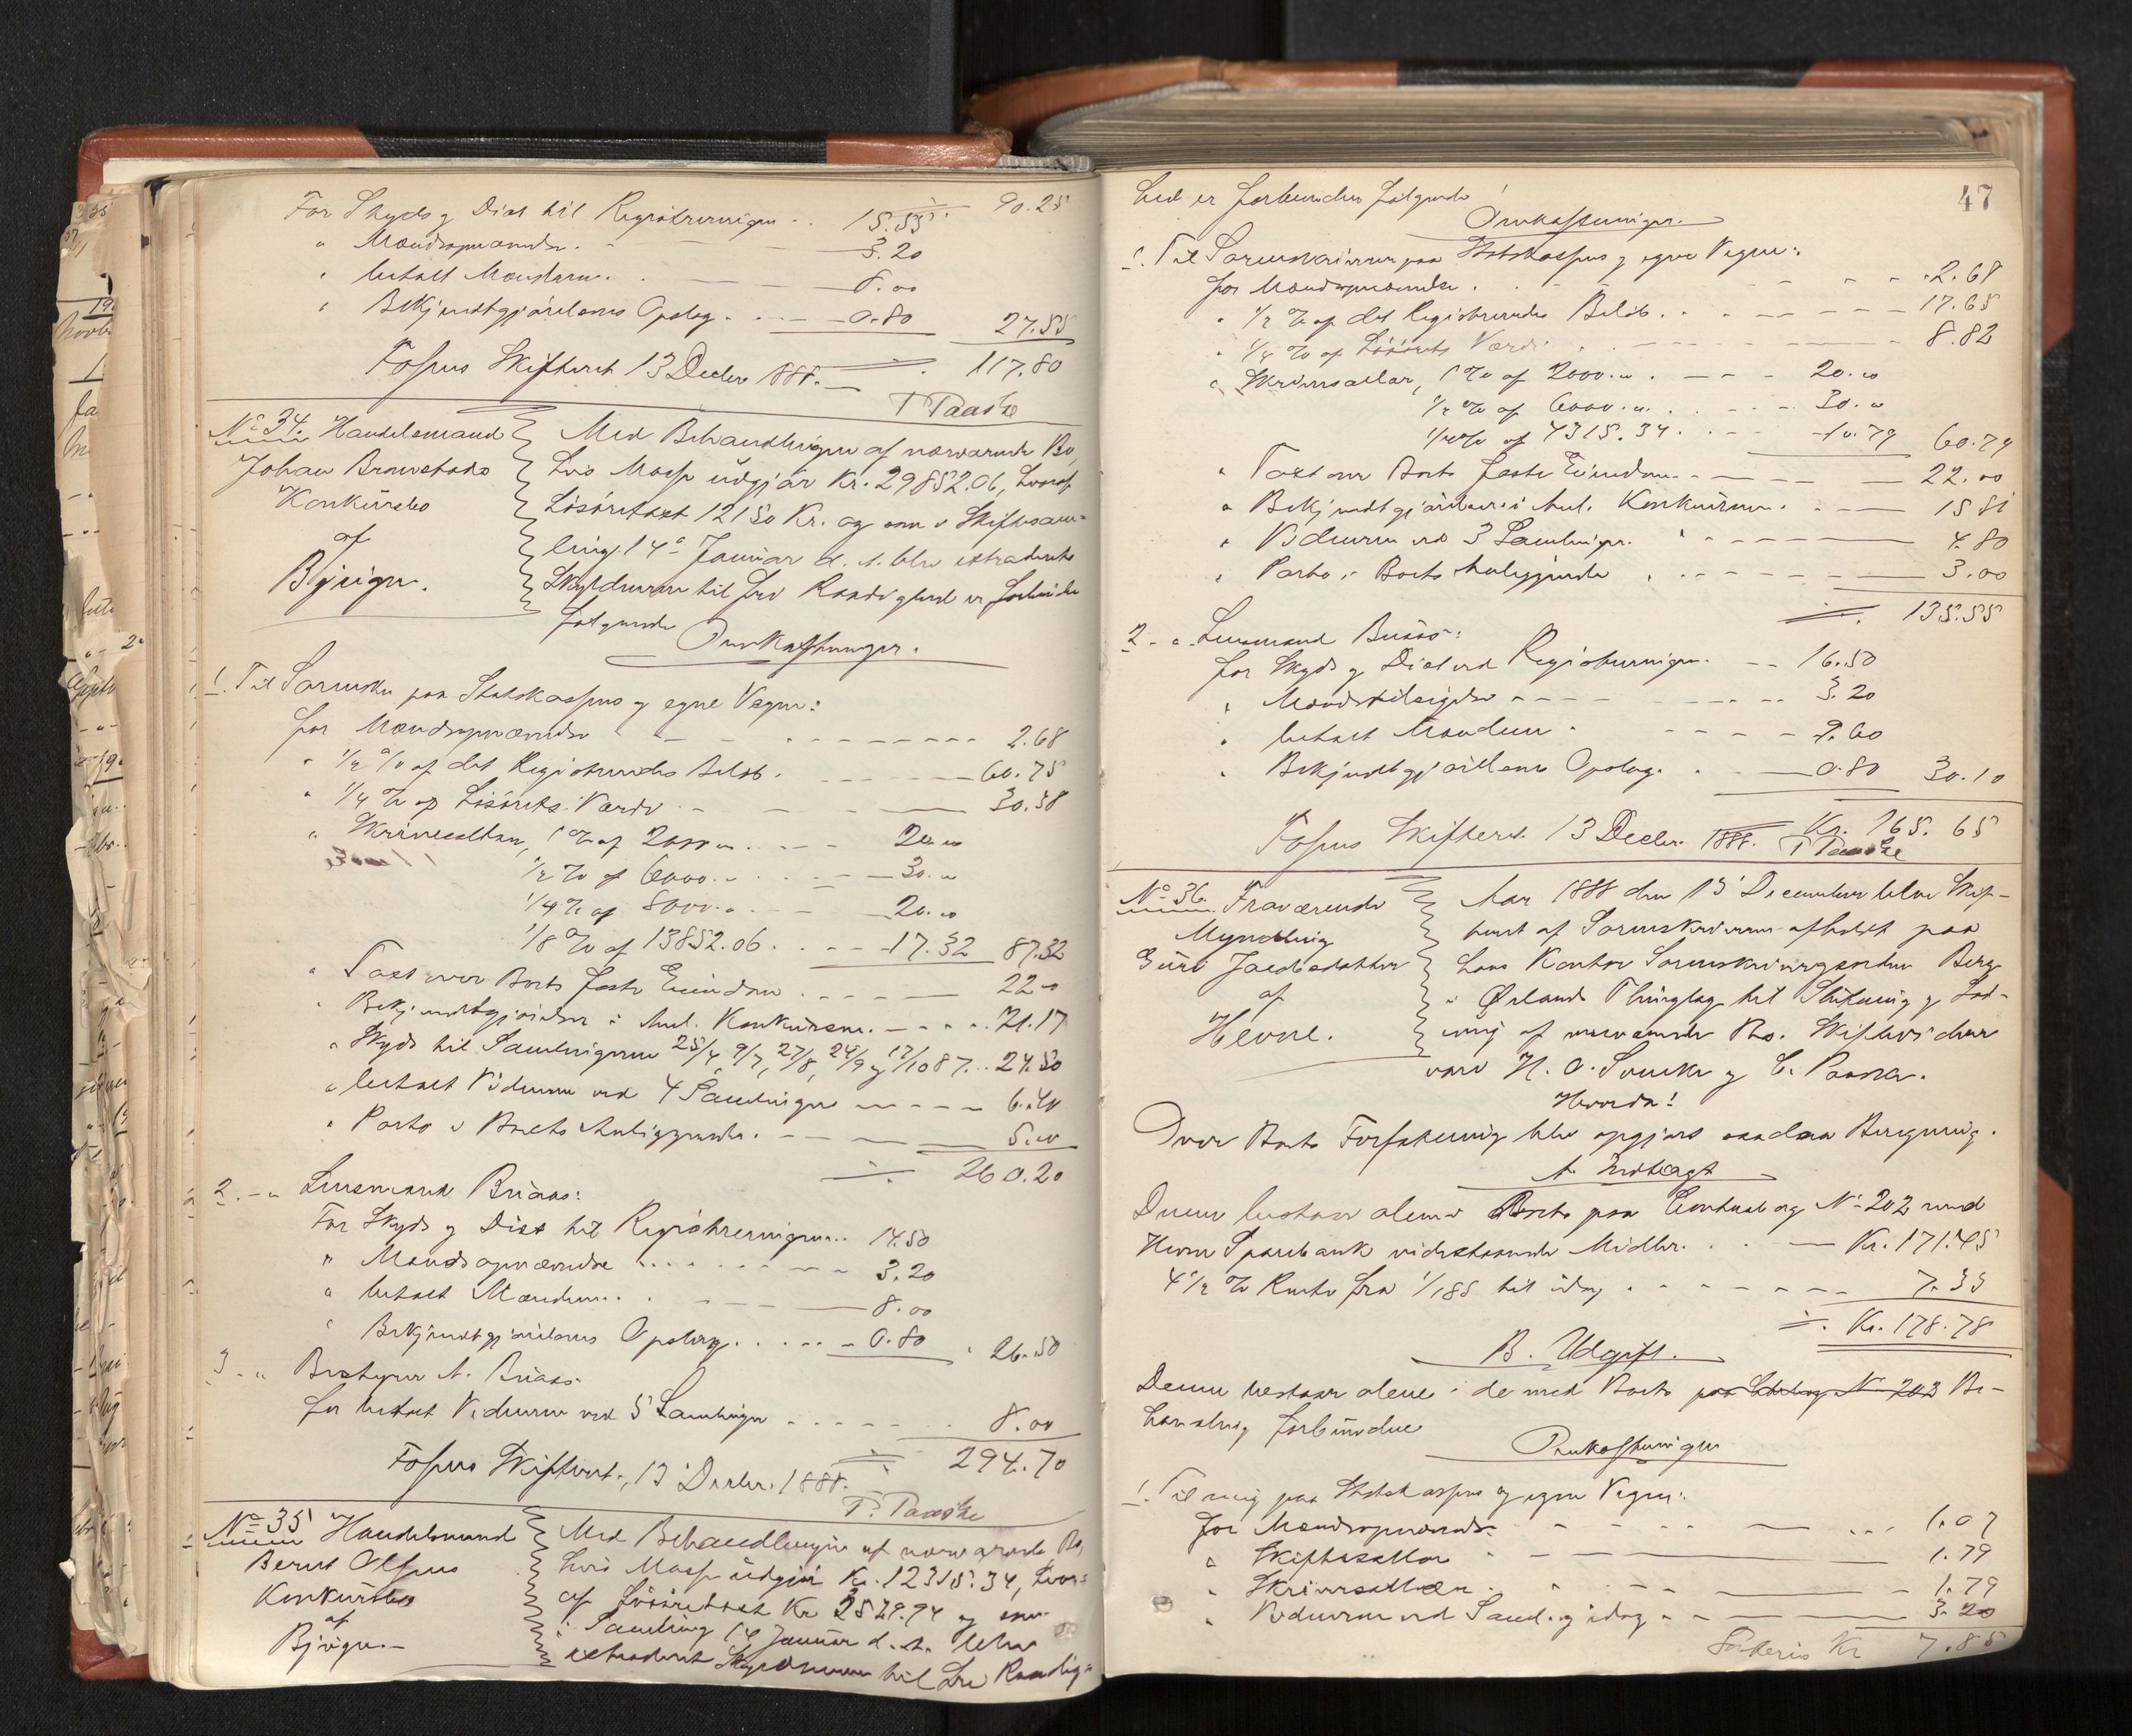 90.25
For Skyds & Diæt til Registreringen - 15.55
" Mændsopnævnelse - 3.20
" betalt Mændene - 8.00
" Bekjendtgjørelsens Opslag - 0.80 27.55
Fosens Skifteret 13 Decbr 1888. 117.80
T Paaske
No 34. Handelsmand
Johan
Konkursbo
af
Bjugn.
Med Behandlingen af nærværende Bo,
hvis Masse udgjør Kr. 29852.06, hvoraf
Løsøretaxt 12150 Kr. og som i Skiftesam-
ling 14de Januar d. A. blev extraderet
Skyldneren til fri Raadighed er forbundne
følgende
Omkostninger.
1. Til Sorenskr paa Statskassens & egne Vegne:
for Mændsopnævnelse - 2.68
" 1/2 % af det Registreredes Beløb - 60.75
" 1/4 % af Løsørets Værdi - 30.38
" Skriversallær, 1 % af 2000.00 - 20.00
1/2 % af 6000.00 - 30.00
1/4 % af 8000.00 - 20.00
1/8 % af 13852.06 - 17.32 87.32
" Taxt over Boets faste Eiendom - 22.00
" Bekjendtgjørelser i Anl. Konkursen - 21.17
" Skyds til Samlingerne 25/4, 9/7, 27/8, 24/9 & 17/10 87 - 24.50
" betalt Vidnerne ved 4 Samlinger - 6.40
" Porto i Boets Anliggende - 5.00
260.20
2. - " Lensmand Buaas:
For Skyds & Diæt til Registreringen - 14.50
" Mændsopnævnelse - 3.20
" betalt Mændene - 8.00
" Bekjendtgjørelsens Opslag - 0.80 26.50
3. - " Bestyrer A. Buaas
for betalt Vidnerne ved 5 Samlinger - 8.00
Fosens Skifteret, 13 Decbr. 1888. 294.70
T. Paaske
No 35 Handelsmand
Bernt Olsens
Konkursbo
af
Bjugn.
Med Behandlingen af nærværende Bo,
hvis Masse udgjør Kr. 12315.34, hvor-
af Løsøretaxt Kr 3529.94 og som
i Samling 14 Januar d. A. blev
extraderet Skyldneren til fri Raadig-
47
hed er forbunden følgende
Omkostninger.
1. Til Sorenskriveren paa Statskassens & egne Vegne:
for Mændsopnævnelse - 2.68
" 1/2 % af det Registreredes Beløb - 17.65
" 1/4 % af Løsørets Værdi - 8.82
" Skriversallær, 1 % af 2000.00 - 20.00
1/2 % af 6000.00 - 30.00
1/4 % af 4315.34 - 10.79 60.79
" Taxt over Boets faste Eiendom - 22.00
" Bekjendtgjørelser i Anl. Konkursen - 15.81
" Vidnerne ved 3 Samlinger - 4.80
" Porto i Boets Anliggende - 3.00
135.55
2. - " Lensmand Buaas:
for Skyds & Diæt ved Registreringen - 16.50
" Mændstilsigelse - 3.20
" betalt Mændene - 9.60
" Bekjendtgjørelsens Opslag - 0.80 30.10
Kr. 165.65
Fosens Skifteret 13 Decbr 1888. T Paaske
No 36. Fraværende
Myndling
Guri Jacobsdatter
af
Hevne.
Aar 1888 den 15 December blev Skif-
teret af Sorenskriveren afholdt paa
hans Kontor Sorenskrivergaarden Berg
i Ørlands Thinglag til Slutning & Lod-
ning af nærværende Bo. Skiftevidner
vare H. O. & C. Paaske.
Hvorda!
Over Boets Forfatning blev opgjort saadan Beregning.
A. Indtægt
Denne bestaar alene i Boets paa Contrabog No 202 med
Hevne Sparebank indestaaende Midler - Kr. 171.45
4 1/2 % Rente fra 1/1 88 til idag - 7.33
Kr. 178.78
B. Udgift.
Denne bestaar alene i de med Boets paa No 203 Be-
handling forbundne
Omkostninger
1. Til mig paa Statskassens og egne Vegne:
for Mændsopnævnelse - 1.07
" Skiftesallær - 1.79
" Skriversallær - 1.79
" Vidnerne ved Samling idag - 3.20
Lateris Kr 7.85